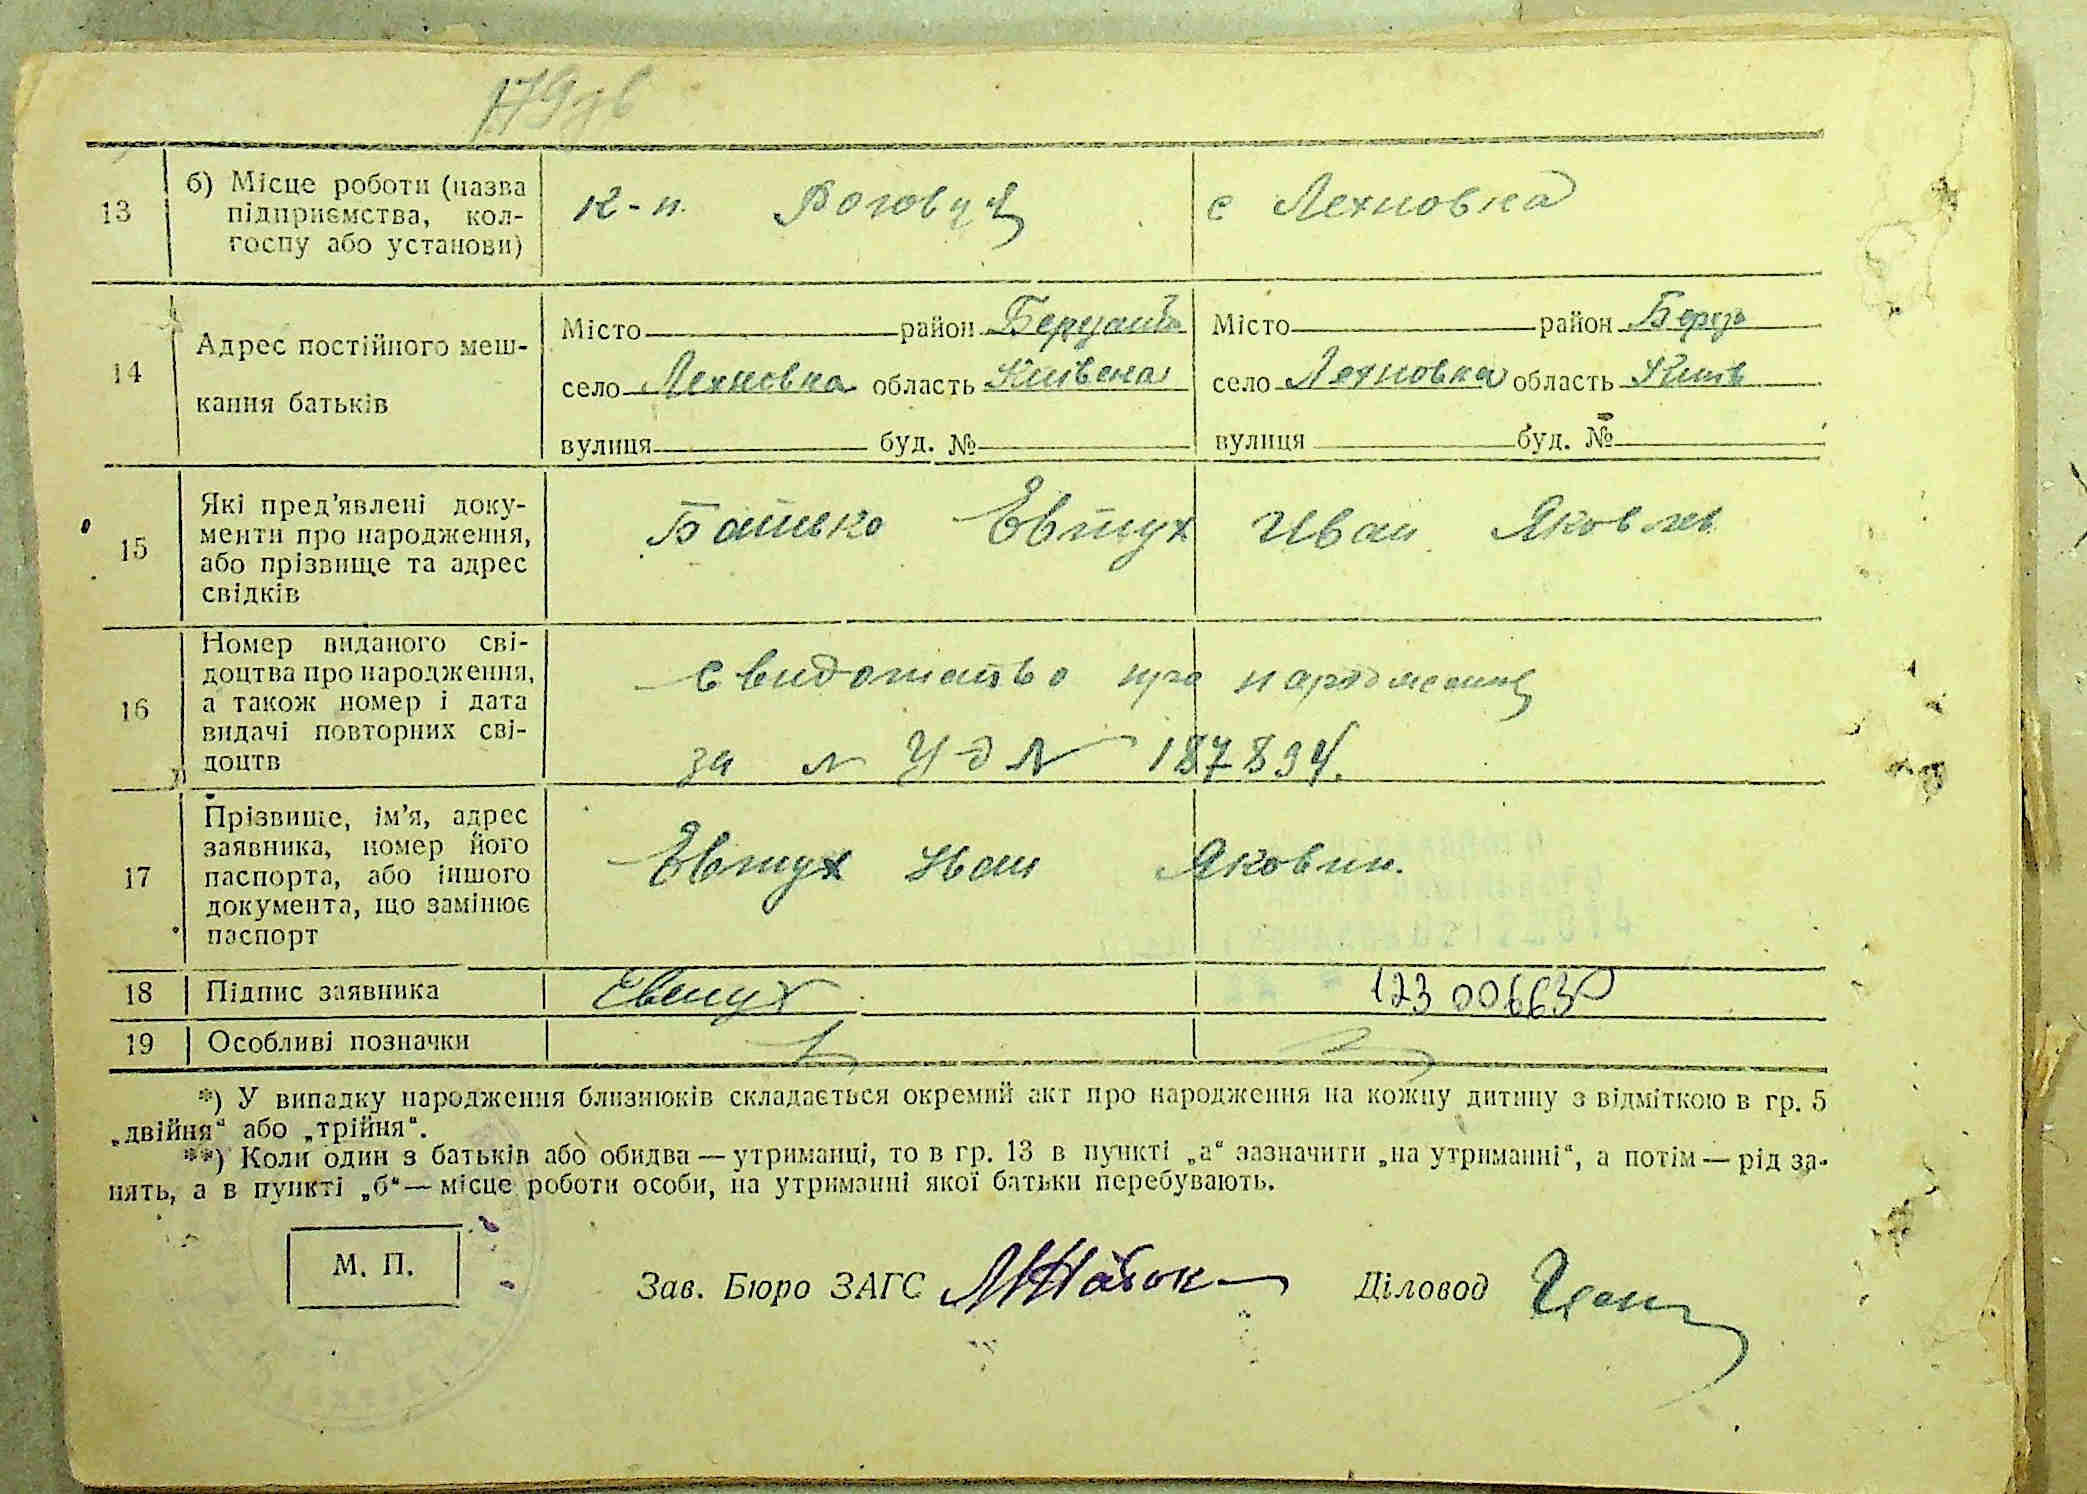 179
13
б) Місце роботи (назва
підприємства, кол-
госпу або установи)
к-п.
с Лехновка
14
Адрес постійного меш-
кання батьків
Місто район
село Лехновка область Київська
вулиця буд. №
Місто район Берез
село Лехновка область Київ
вулиця буд. №
15
Які пред’явлені доку-
менти про народження,
або прізвище та адрес
свідків
Батько Евтух Иван Яковлев
16
Номер виданого сві-
доцтва про народження,
а також номер і дата
видачі повторних сві-
доцтв
свидотство про народження
за № УД № 187894.
17
Прізвище, ім’я, адрес
заявника, номер його
паспорта, або іншого
документа, що замінює
паспорт
Евтух Иван
18
Підпис заявника
Евтух
123 006630
19
Особливі позначки
*) У випадку народження близнюків складається окремий акт про народження на кожну дитину з відміткою в гр. 5
„двійня“ або „трійня“.
**) Коли один з батьків або обидва — утриманці, то в гр. 13 в пункті „а“ зазначити „на утриманні“, а потім — рід за-
нять, а в пункті „б“ — місце роботи особи, на утриманні якої батьки перебувають.
М. П.
Зав. Бюро ЗАГС
Діловод